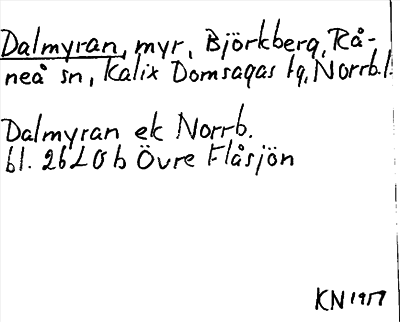 Dalmyran, myr, Björkberg, Rå-
neå sn, Kalix Domsagas tg, Norrb.l.
Dalmyran ek Norrb.
bl. 26 L 0 b Övre Flåsjön
KN 1957